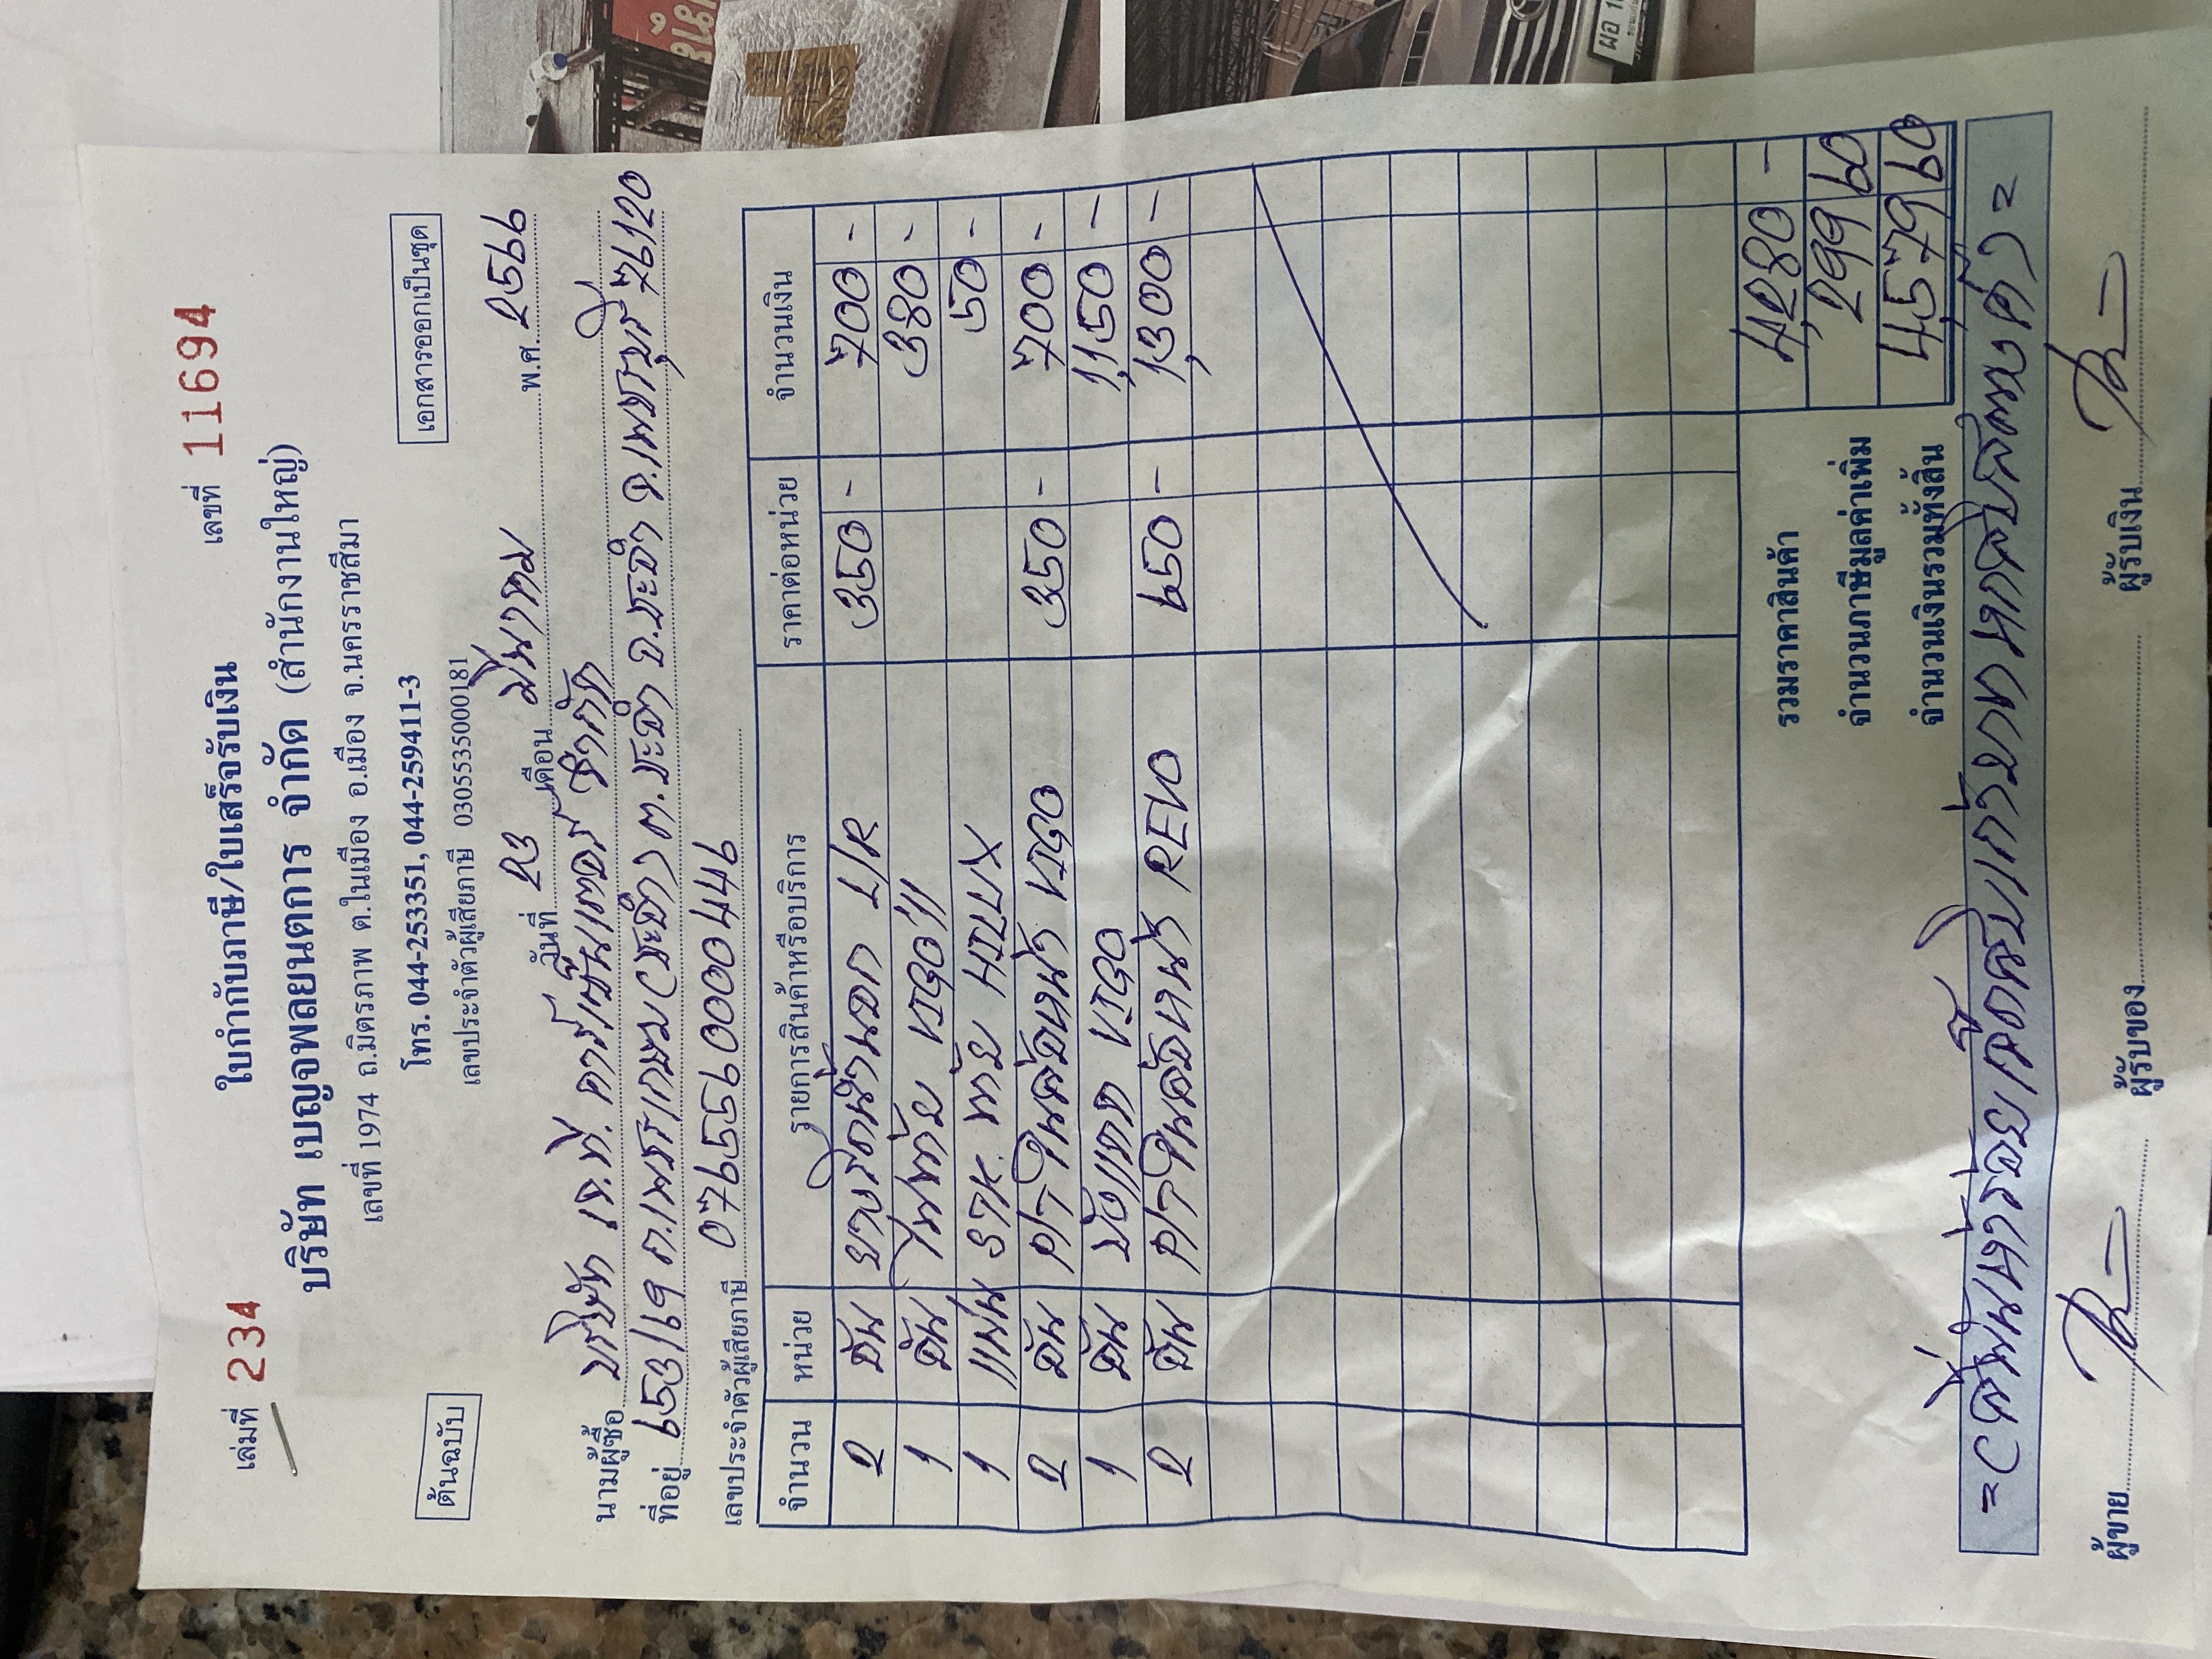 เล่มที่ 234 ใบกำกับภาษี/ใบเสร็จรับเงิน เลขที่ 11694
บริษัท เบญจพลยนตการ จำกัด (สำนักงานใหญ่)
เลขที่ 1974 ถ.มิตรภาพ ต.ในเมือง อ.เมือง จ.นครราชสีมา
ต้นฉบับ โทร. 044-253351, 044-259411-3 เอกสารออกเป็นชุด
เลขประจำตัวผู้เสียภาษี 0305535000181
วันที่ 23 เดือน มีนาคม พ.ศ. 2566
นามผู้ซื้อ บริษัท เจ.ที. คาร์เซ็นเตอร์ จำกัด
ที่อยู่ 653/19 ถ.เพชรเกษม ต.ชะอำ อ.ชะอำ จ.เพชรบุรี 76120
เลขประจำตัวผู้เสียภาษี 0765560000446
จำนวน หน่วย รายการสินค้าหรือบริการ ราคาต่อหน่วย จำนวนเงิน
2 อัน L/R 350 - 700 -
1 อัน ไฟท้าย VIGO 380 -
1 แผ่น STK. ท้าย HILUX 50 -
2 อัน VIGO 350 - 700 -
1 อัน VIGO 1,150 -
2 อัน REVO 650 - 1,300 -
รวมราคาสินค้า 4,280 -
จำนวนภาษีมูลค่าเพิ่ม 299 60
จำนวนเงินรวมทั้งสิ้น 4,579 60
=(สี่พันห้าร้อยเจ็ดสิบเก้าบาทหกสิบสตางค์)=
ผู้ขาย ผู้รับของ ผู้รับเงิน
ผอ